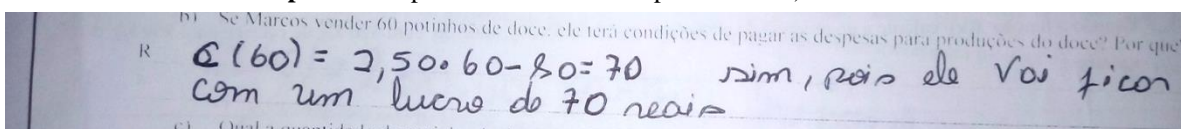 b) Se Marcos vender 60 potinhos de doce, ele terá condições de pagar as despesas para produções do doce? Por que
R C(60) = 2,50.60-80=70 sim, pois ele vai ficar
com um lucro de 70 reais
c) Qual a quantidade de